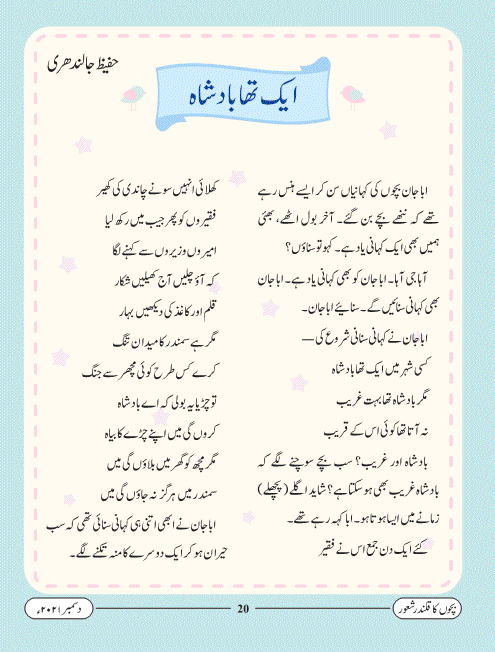 حفیظ جالندھری
ایک تھا بادشاہ
ابا جان بچوں کی کہانیاں سن کر ایسے ہنس رہے
تھے کہ ننھے بچے بن گئے۔ آخر بول اٹھے، بھئی
ہمیں بھی ایک کہانی یاد ہے۔ کہو تو سناؤں؟
آہا جی آہا۔ ابا جان کو بھی کہانی یاد ہے۔ ابا جان
بھی کہانی سنائیں گے۔ سنائیے ابا جان۔
ابا جان نے کہانی سنانی شروع کی—
کسی شہر میں ایک تھا بادشاہ
مگر بادشاہ تھا بہت غریب
نہ آتا تھا کوئی اس کے قریب
بادشاہ اور غریب؟ سب بچے سوچنے لگے کہ
بادشاہ غریب بھی ہو سکتا ہے؟ شاید اگلے (پچھلے)
زمانے میں ایسا ہوتا ہو۔ ابا کہہ رہے تھے۔
کئے ایک دن جمع اس نے فقیر
کھلائی انہیں سونے چاندی کی کھیر
فقیروں کو پھر جیب میں رکھ لیا
امیروں وزیروں سے کہنے لگا
کہ آؤ چلیں آج کھیلیں شکار
قلم اور کاغذ کی دیکھیں بہار
مگر ہے سمندر کا میدان تنگ
کرے کس طرح کوئی مچھر سے جنگ
تو چڑیا یہ بولی کہ اے بادشاہ
کروں گی میں اپنے چڑے کا بیاہ
مگرمچھ کو گھر میں بلاؤں گی میں
سمندر میں ہرگز نہ جاؤں گی میں
ابا جان نے ابھی اتنی ہی کہانی سنائی تھی کہ سب
حیران ہو کر ایک دوسرے کا منہ تکنے لگے۔
بچوں کا قلندر شعور
20
دسمبر ۲۰۲۱ء